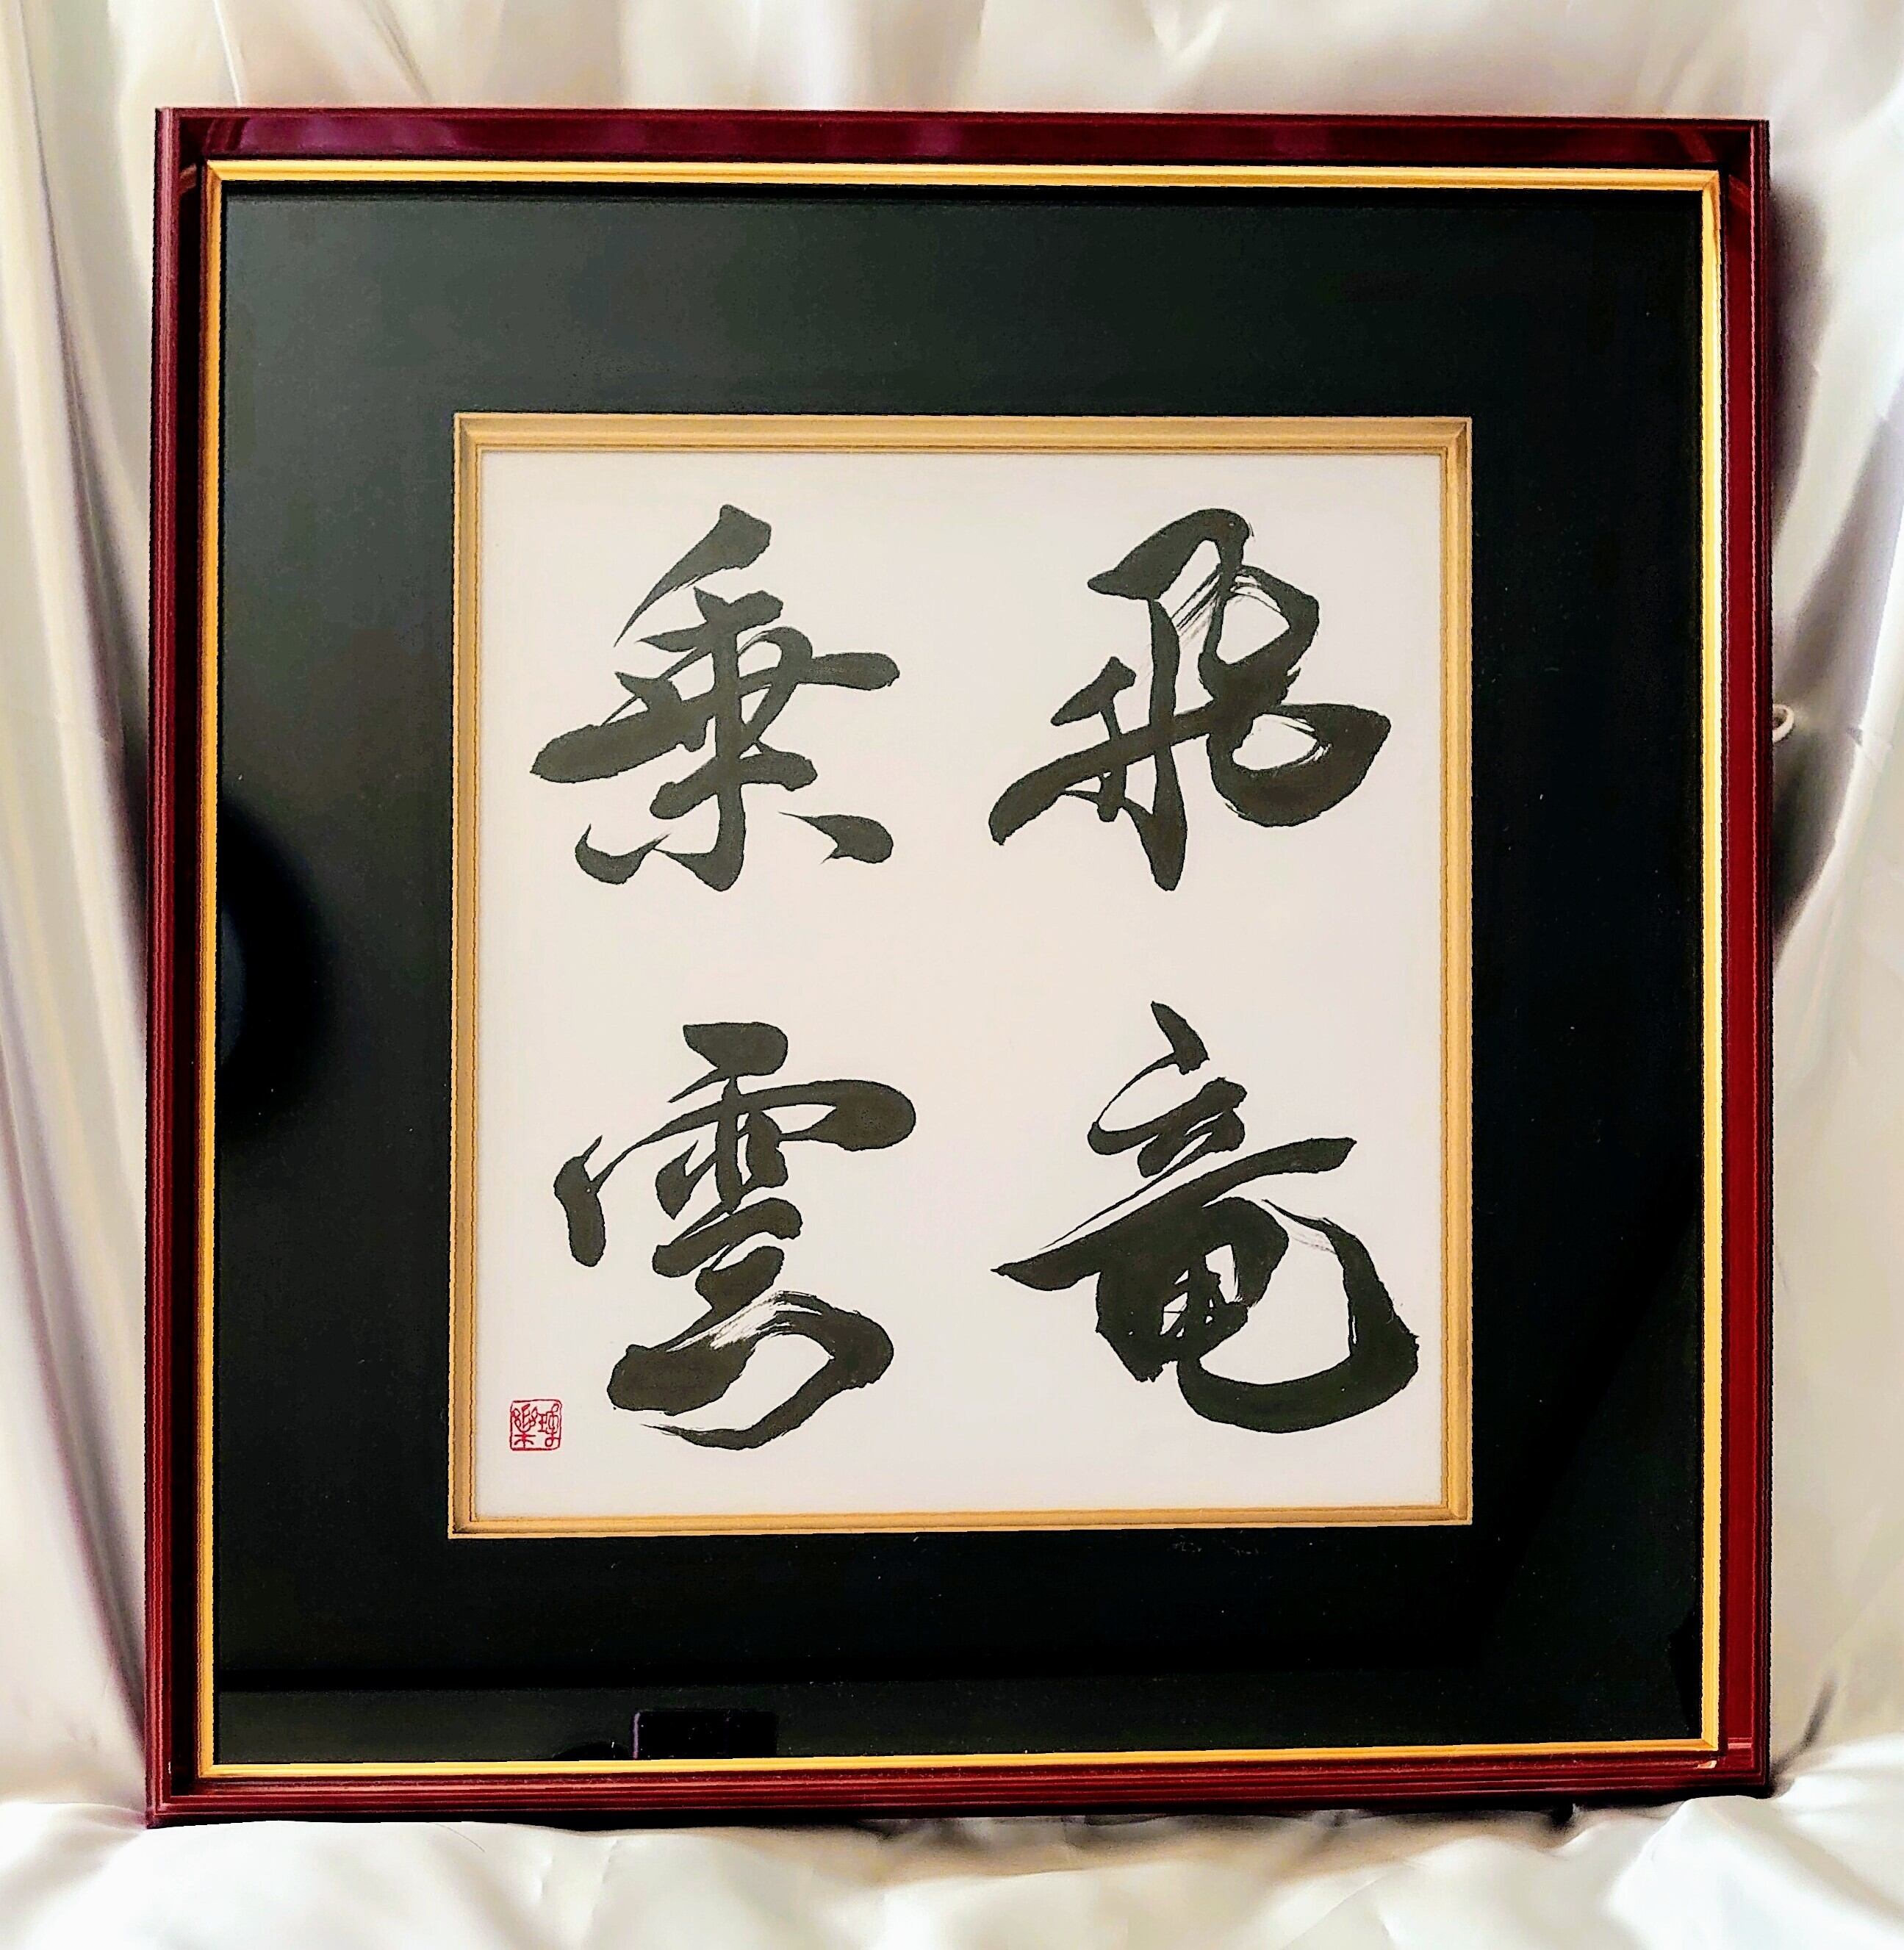 飛竜
乗雲